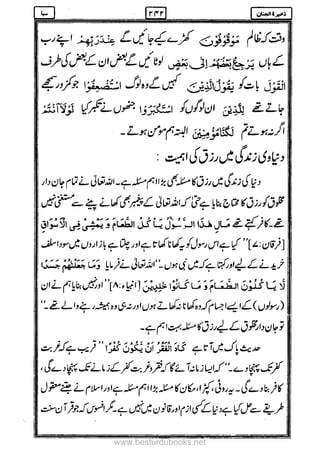 ذخیرۃ الجنان ۲۴۲ سبا
وقت کہ ظالم مَوْقُوْفُوْنَ کھڑے کیے جائیں گے عِنْدَ رَبِّهِمْ اپنے رب
کے ہاں یَرْجِعُ بَعْضُهُمْ اِلٰی بَعْضِ لوٹائیں گے بعض ان کے بعض کی طرف
الْقَوْلَ بات کو یَقُوْلُ الَّذِیْنَ کہیں گے وہ لوگ اسْتُضْعِفُوْا جو کمزور سمجھے
جاتے تھے لِلَّذِیْنَ ان لوگوں کو اسْتَكْبَرُوْا جنھوں نے تکبر کیا لَوْ لَآ اَنْتُمْ
اگر نہ ہوتے تم لَكُنَّا مُؤْمِنِیْنَ البتہ ہم مومن ہوتے۔
دنیاوی زندگی میں رزق کی اہمیت :
دنیا کی زندگی میں رزق کا مسئلہ بھی بڑا اہم مسئلہ ہے۔ اللہ تعالیٰ نے تمام جان دار
مخلوق کو رزق کا محتاج بنایا ہے حتیٰ کہ اللہ تعالیٰ کے پیغمبر بھی کھانے پینے سے مستغنی نہیں
تھے۔ کافر کہتے تھے مَالِ هٰذَا الرَّسُوْلِ یَاْكُلُ الطَّعَامَ وَ یَمْشِیْ فِی الْاَسْوَاقِ
[فرقان: ۷] ''کیا ہے اس رسول کو یہ کھانا کھاتا ہے اور چلتا ہے بازاروں میں سودا سلف
خریدنے کے لیے اور کہتا ہے کہ میں نبی ہوں۔'' اللہ تعالیٰ نے فرمایا وَمَا جَعَلْنٰهُمْ جَسَدًا
لَّا یَاْكُلُوْنَ الطَّعَامَ وَ مَا كَانُوْا خٰلِدِیْنَ [انبیاء: ۸] ''اور نہیں بنایا ہم نے ان
(رسولوں) کے ایسے اجسام کہ وہ کھانا نہ کھاتے ہوں اور نہ ہی وہ ہمیشہ رہنے والے تھے۔''
تو جان دار مخلوق کے لیے رزق کا مسئلہ بہت اہم ہے۔
حدیث پاک میں آتا ہے كَادَ الْفَقْرُ اَنْ یَّكُوْنَ كُفْرًا ''قریب ہے کہ غربت
کفر تک پہنچا دے۔'' کہ ایسا زمانہ آئے گا کہ فقر و غربت کفر کے زمانے تک پہنچا دے گی،
کافر بنا دے گی۔ یہ روٹی، کپڑا، مکان کا مسئلہ بڑا اہم مسئلہ ہے اور اسلام نے جتنے معقول
طریقے سے حل کیا ہے دنیا کے کسی ازم اور قانون میں نہیں ہے۔ مگر افسوس کہ جو قرآن سنت
www.besturdubooks.net